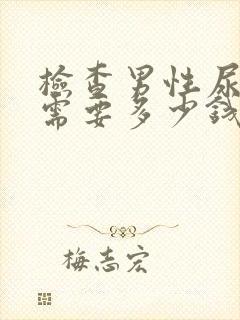 檢查男性尿
需要多少錢
梅志宏